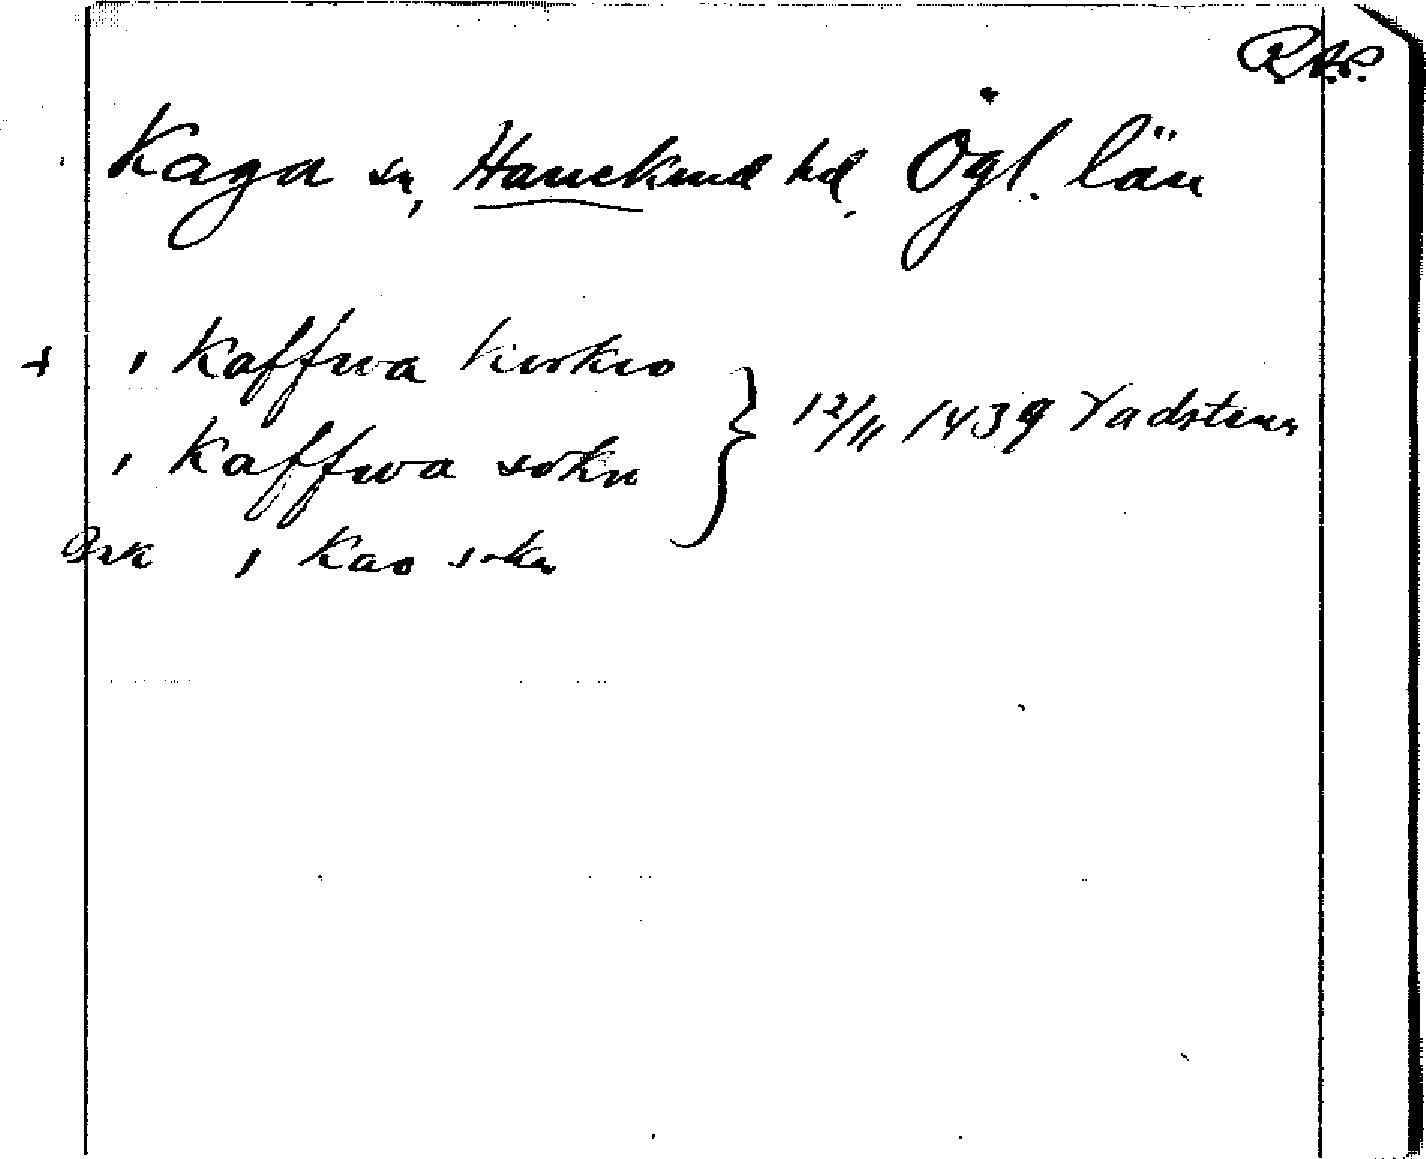 RAP.
Kaga sn, Hanekind hd. Ögl. län
+ i Kaffwa kirkio
i Kaffwa sokn
12/11 1439 Vadstena
i Kao sokn